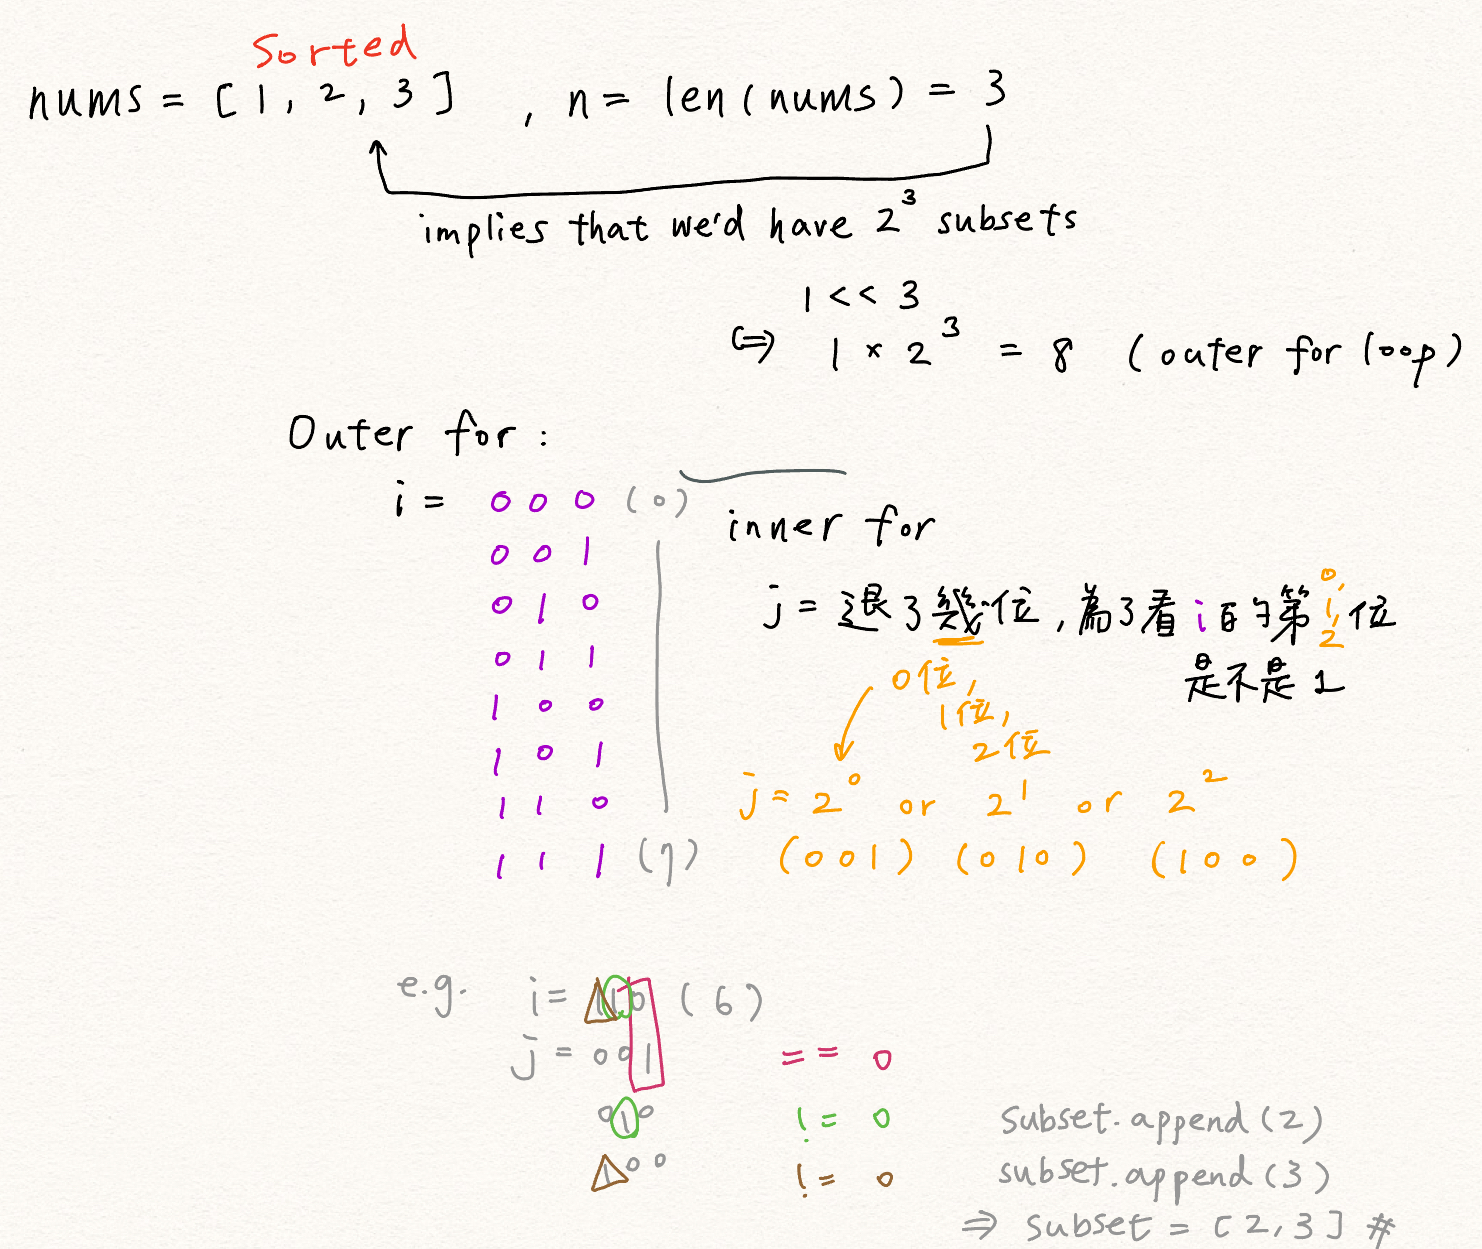 Sorted
nums = [1, 2, 3] , n = len(nums) = 3
implies that we'd have 2³ subsets
1 << 3
⇔ 1 × 2³ = 8 (outer for loop)
Outer for :
i = 0 0 0 (0)
0 0 1
0 1 0
0 1 1
1 0 0
1 0 1
1 1 0
1 1 1 (7)
inner for
j = 退了幾位, 為了看 i 的第 0, 1, 2 位
是不是 1
0位,
1位,
2位
j = 2⁰ or 2¹ or 2²
(001) (010) (100)
e.g. i = 110 (6)
j = 001 == 0
010 != 0 subset.append(2)
100 != 0 subset.append(3)
⇒ subset = [2,3] #